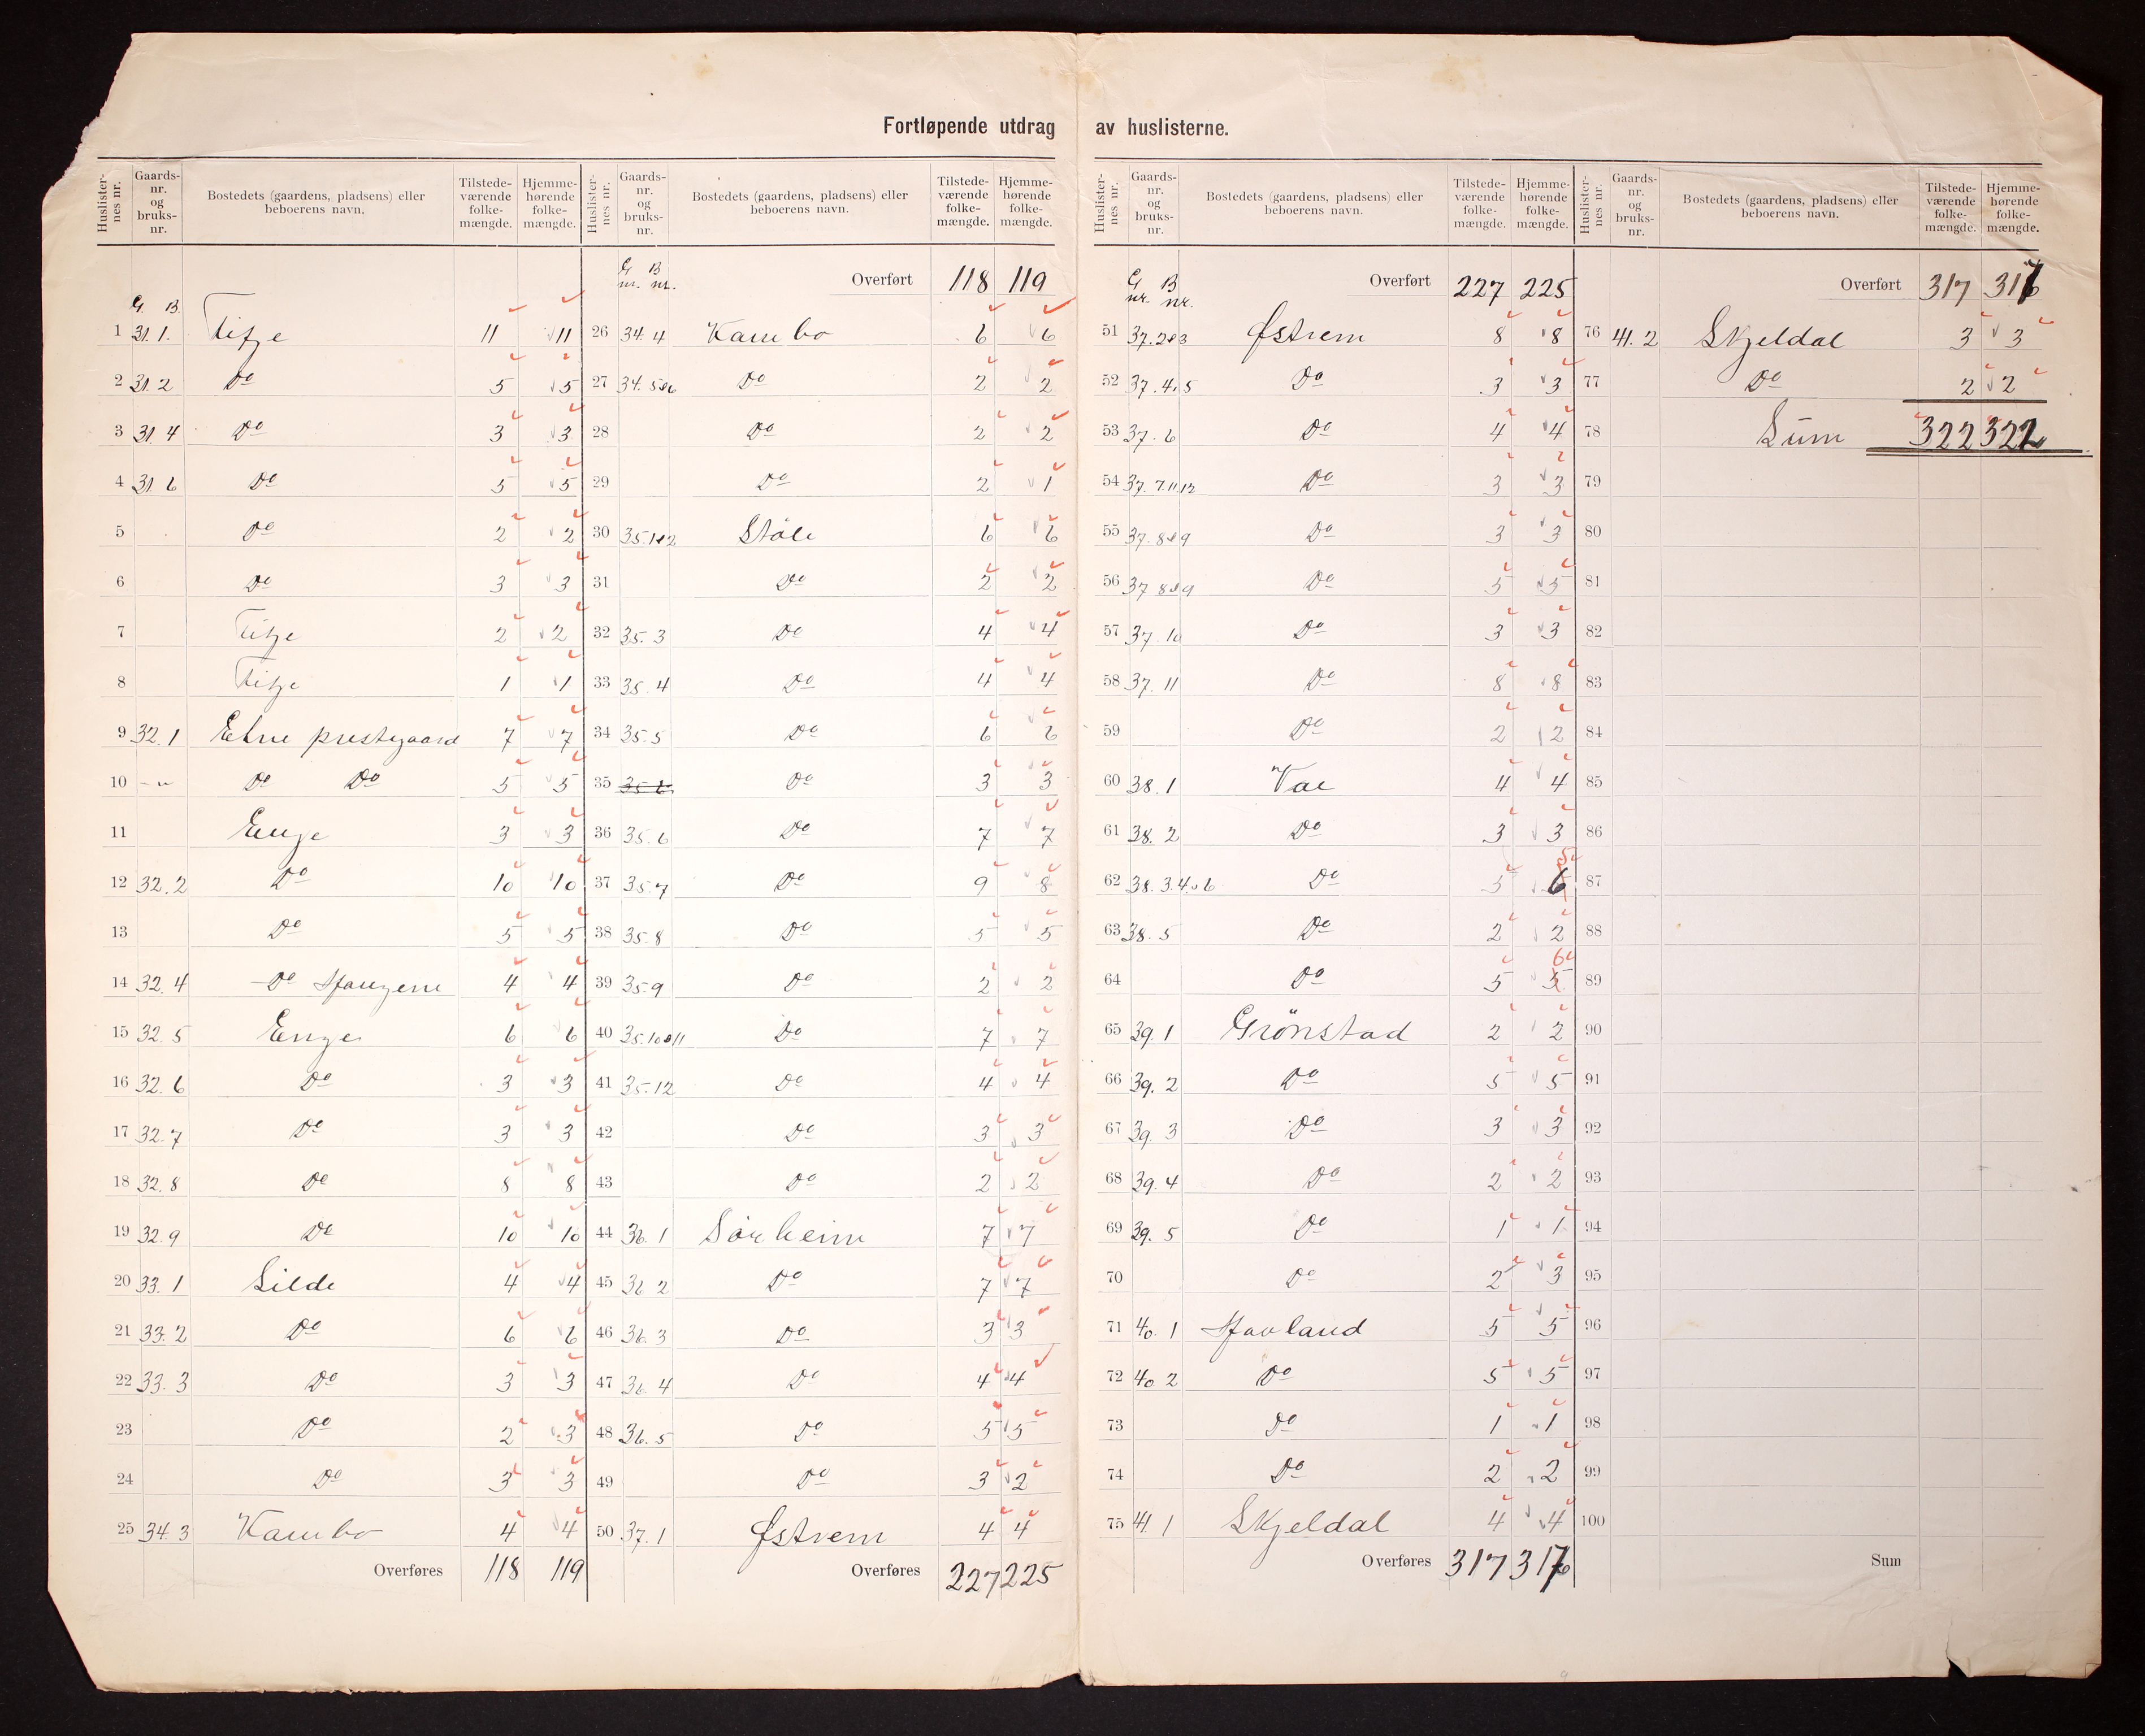 Fortløpende utdrag av huslisterne.
Huslister-nes nr. Gaards-nr. og bruks-nr. Bostedets (gaardens, pladsens) eller beboerens navn. Tilstede-værende folke-mængde. Hjemme-hørende folke-mængde.
G. B.
1 31.1. 11 11
2 31.2 Do 5 5
3 31.4 Do 3 3
4 31.6 Do 5 5
5 Do 2 2
6 Do 3 3
7 2 2
8 1 1
9 32.1 Etne prestegaard 7 7
10 -"- Do Do 5 5
11 Enge 3 3
12 32.2 Do 10 10
13 Do 5 5
14 32.4 Do Haugen 4 4
15 32.5 Enge 6 6
16 32.6 Do 3 3
17 32.7 Do 3 3
18 32.8 Do 8 8
19 32.9 Do 10 10
20 33.1 Silde 4 4
21 33.2 Do 6 6
22 33.3 Do 3 3
23 Do 2 3
24 Do 3 3
25 34.3 Kambo 4 4
Overføres 118 119
Huslister-nes nr. Gaards-nr. og bruks-nr. Bostedets (gaardens, pladsens) eller beboerens navn. Tilstede-værende folke-mængde. Hjemme-hørende folke-mængde.
G nr. B nr. Overført 118 119
26 34.4 Kambo 6 6
27 34.5&6 Do 2 2
28 Do 2 2
29 Do 2 1
30 35.1&2 Støle 6 6
31 Do 2 2
32 35.3 Do 4 4
33 35.4 Do 4 4
34 35.5 Do 6 6
35 35.6 Do 3 3
36 35.6 Do 7 7
37 35.7 Do 9 8
38 35.8 Do 5 5
39 35.9 Do 2 2
40 35.10&11 Do 7 7
41 35.12 Do 4 4
42 Do 3 3
43 Do 2 2
44 36.1 Sørheim 7 7
45 36.2 Do 7 7
46 36.3 Do 3 3
47 36.4 Do 4 4
48 36.5 Do 5 5
49 Do 3 2
50 37.1 Østrem 4 4
Overføres 227 225
Huslister-nes nr. Gaards-nr. og bruks-nr. Bostedets (gaardens, pladsens) eller beboerens navn. Tilstede-værende folke-mængde. Hjemme-hørende folke-mængde.
G nr. B nr. Overført 227 225
51 37.2&3 Østrem 8 8
52 37.4.5 Do 3 3
53 37.6 Do 4 4
54 37.7.11.12 Do 3 3
55 37.8&9 Do 3 3
56 37 8&9 Do 5 5
57 37.10 Do 3 3
58 37.11 Do 8 8
59 Do 2 2
60 38.1 Vae 4 4
61 38.2 Do 3 3
62 38.3.4.&6 Do 5 6 5
63 38.5 Do 2 2
64 Do 5 5 6
65 39.1 Grönstad 2 2
66 39.2 Do 5 5
67 39.3 Do 3 3
68 39.4 Do 2 2
69 39.5 Do 1 1
70 Do 2 3
71 40.1 Havland 5 5
72 40 2 Do 5 5
73 Do 1 1
74 Do 2 2
75 41.1 Skjeldal 4 4
Overføres 317 317
Huslister-nes nr. Gaards-nr. og bruks-nr. Bostedets (gaardens, pladsens) eller beboerens navn. Tilstede-værende folke-mængde. Hjemme-hørende folke-mængde.
Overført 317 317
76 41.2 Skjeldal 3 3
77 Do 2 2
78 Sum 322 322
79
80
81
82
83
84
85
86
87
88
89
90
91
92
93
94
95
96
97
98
99
100
Sum